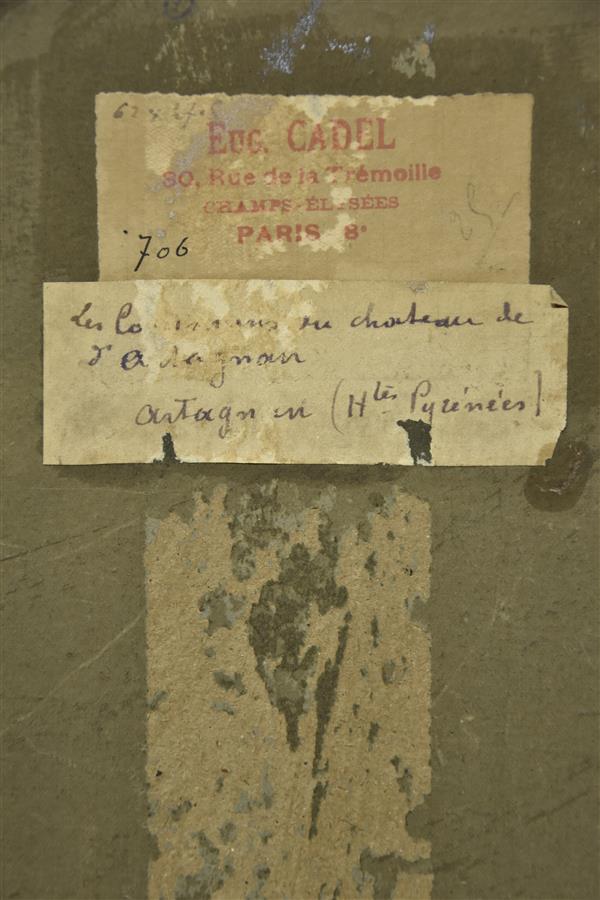 EUG. CADEL
80, Rue de la Trémoille
CHAMPS-ÉLYSÉES
PARIS 8e
706
Les Communs du chateau de
d'Artagnan
Artagnan (Htes Pyrénées)